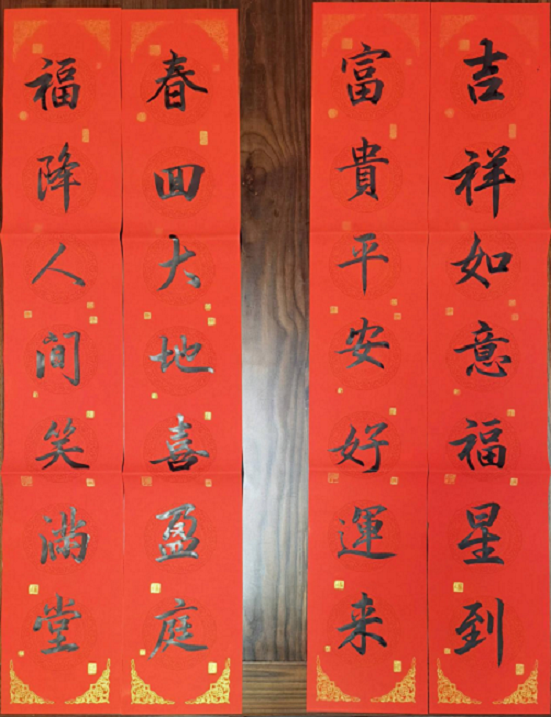 吉祥如意福星到
富貴平安好運来
春回大地喜盈庭
福降人間笑滿堂